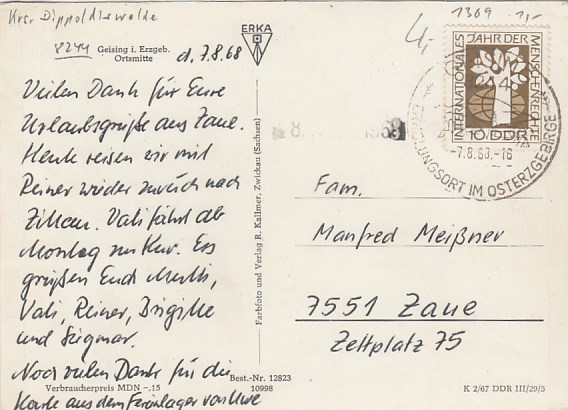 Krs. Dippoldiswalde
8244
Geising i. Erzgeb.
Ortsmitte
d. 7.8.68
Vielen Dank für Eure
Urlaubsgrüße aus Zaue.
Heute reisen wir mit
Reiner wieder zurück nach
Zittau. Vati fährt ab
Montag zur Kur. Es
grüßen Euch Mutti,
Vati, Reiner, Brigitte
und Siegmar.
Noch vielen Dank für die
Karte aus dem Ferienlager von Uwe
Verbraucherpreis MDN -.15
Best.-Nr. 12823
10998
ERKA
Farbfoto und Verlag R. Kallmer, Zwickau (Sachsen)
1309 1,-
INTERNATIONALES JAHR DER MENSCHENRECHTE
10 DDR
-7.8.68.-16
ERHOLUNGSORT IM OSTERZGEBIRGE
Fam.
Manfred Meißner
7551 Zaue
Zeltplatz 75
K 2/67 DDR III/29/5